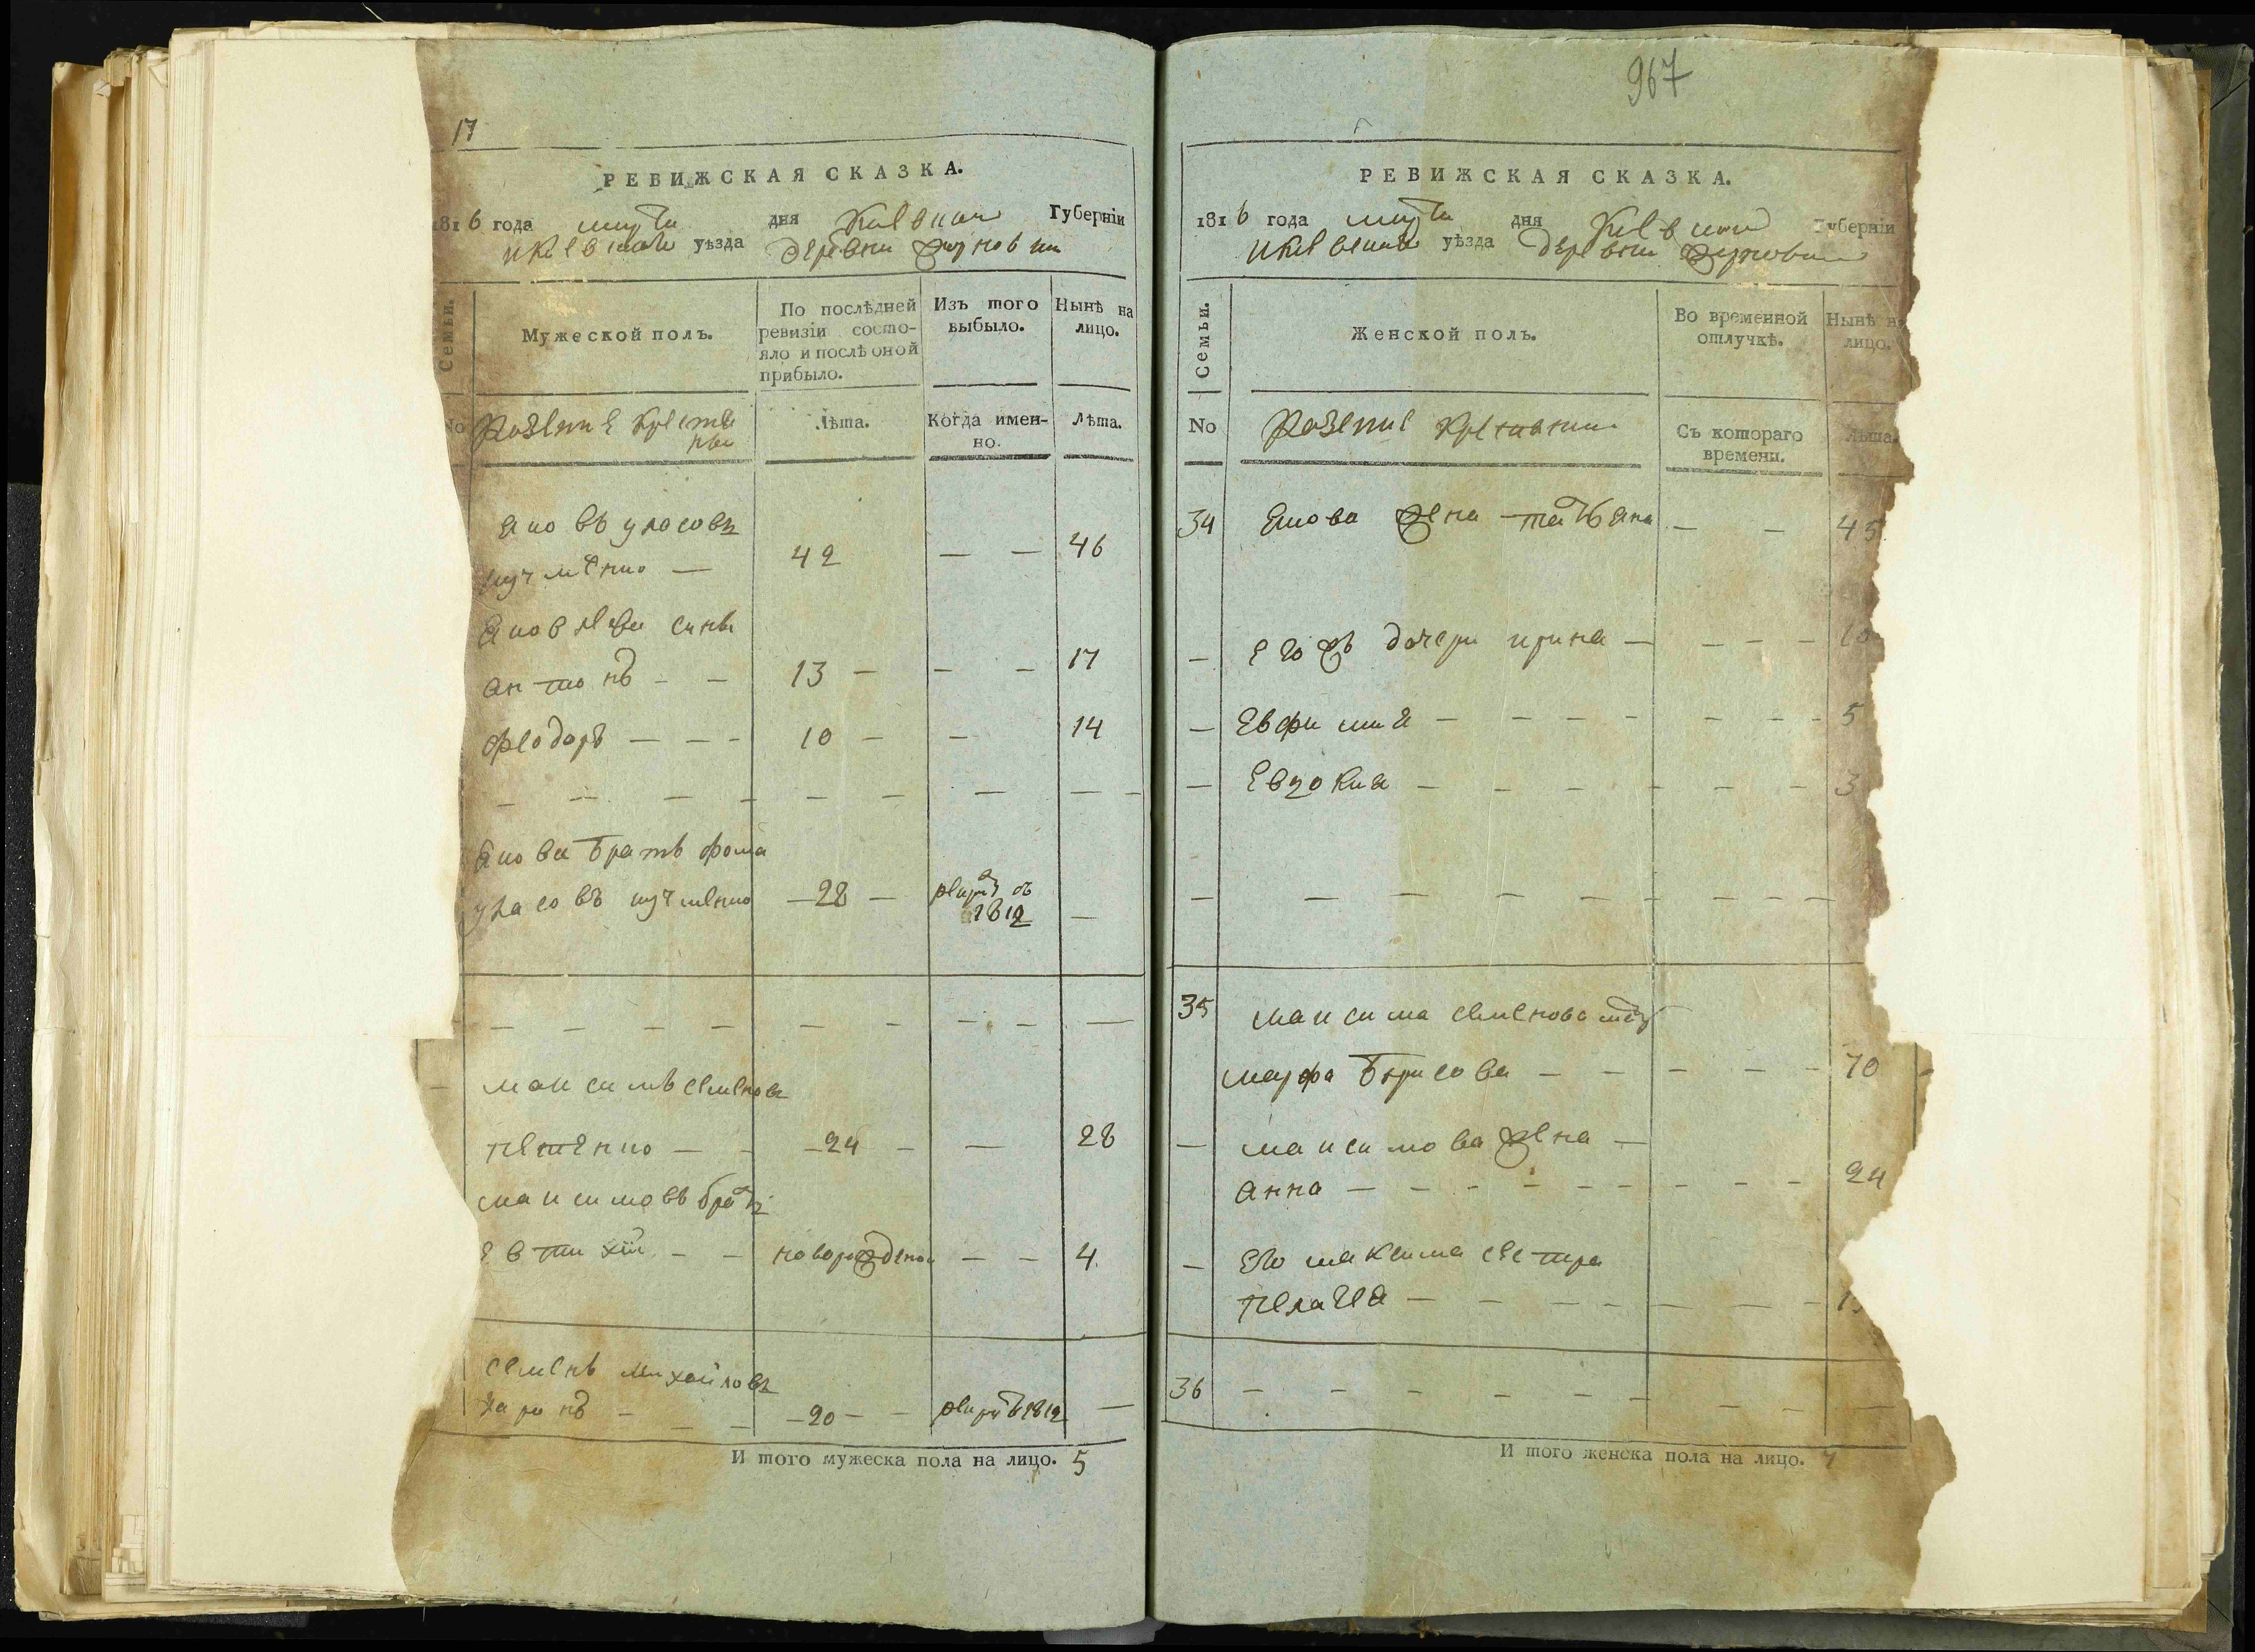 17
РЕВИЖСКАЯ СКАЗКА.
1816 года марта дня Киевской Губерніи
и Киевскаго уѣзда деревни
Семьи.
Мужеской полъ.
По послѣдней ревизіи состо-
яло и послѣ оной
прибыло.
Изъ того
выбыло.
Нынѣ на
лицо.
No
Казенние крестья
не
Лѣта.
Когда имен-
но.
Лѣта.
Яковъ уласовъ
42 — — 46
Яковлеви сини
антонъ - - 13 - - - 17
феодоръ — — - 10 - - 14
Якова братъ фома
уласовъ — 28 — 1812 —
максимъ семеновъ
- 24 - — 28
максимовъ братъ
Евтихій - - новорожденой — — 4
семенъ михайловъ
- 20 - - 1812 —
И того мужеска пола на лицо. 5
967
РЕВИЖСКАЯ СКАЗКА.
1816 года марта дня Киевской Губерніи
и Киевскаго уѣзда деревни
Семьи.
Женской полъ.
Во временной
отлучкѣ.
Нынѣ н
лицо.
No
Казенние крестьяни
Съ котораго
времени.
Лѣта.
34 Якова жена татьяна — - 45
— Егожъ дочери ирина — - - - 10
— Евфимия - - - - - - - 5
— Евдокия - - - - - - - 3
35 максима семенова мать
марфа борисова - - - - - 70
— максимова жена —
анна — - - - - - - - - 24
- Его максима сестра
пелагея - - - - - - - -
36 - - - - - -
И того женска пола на лицо. 7